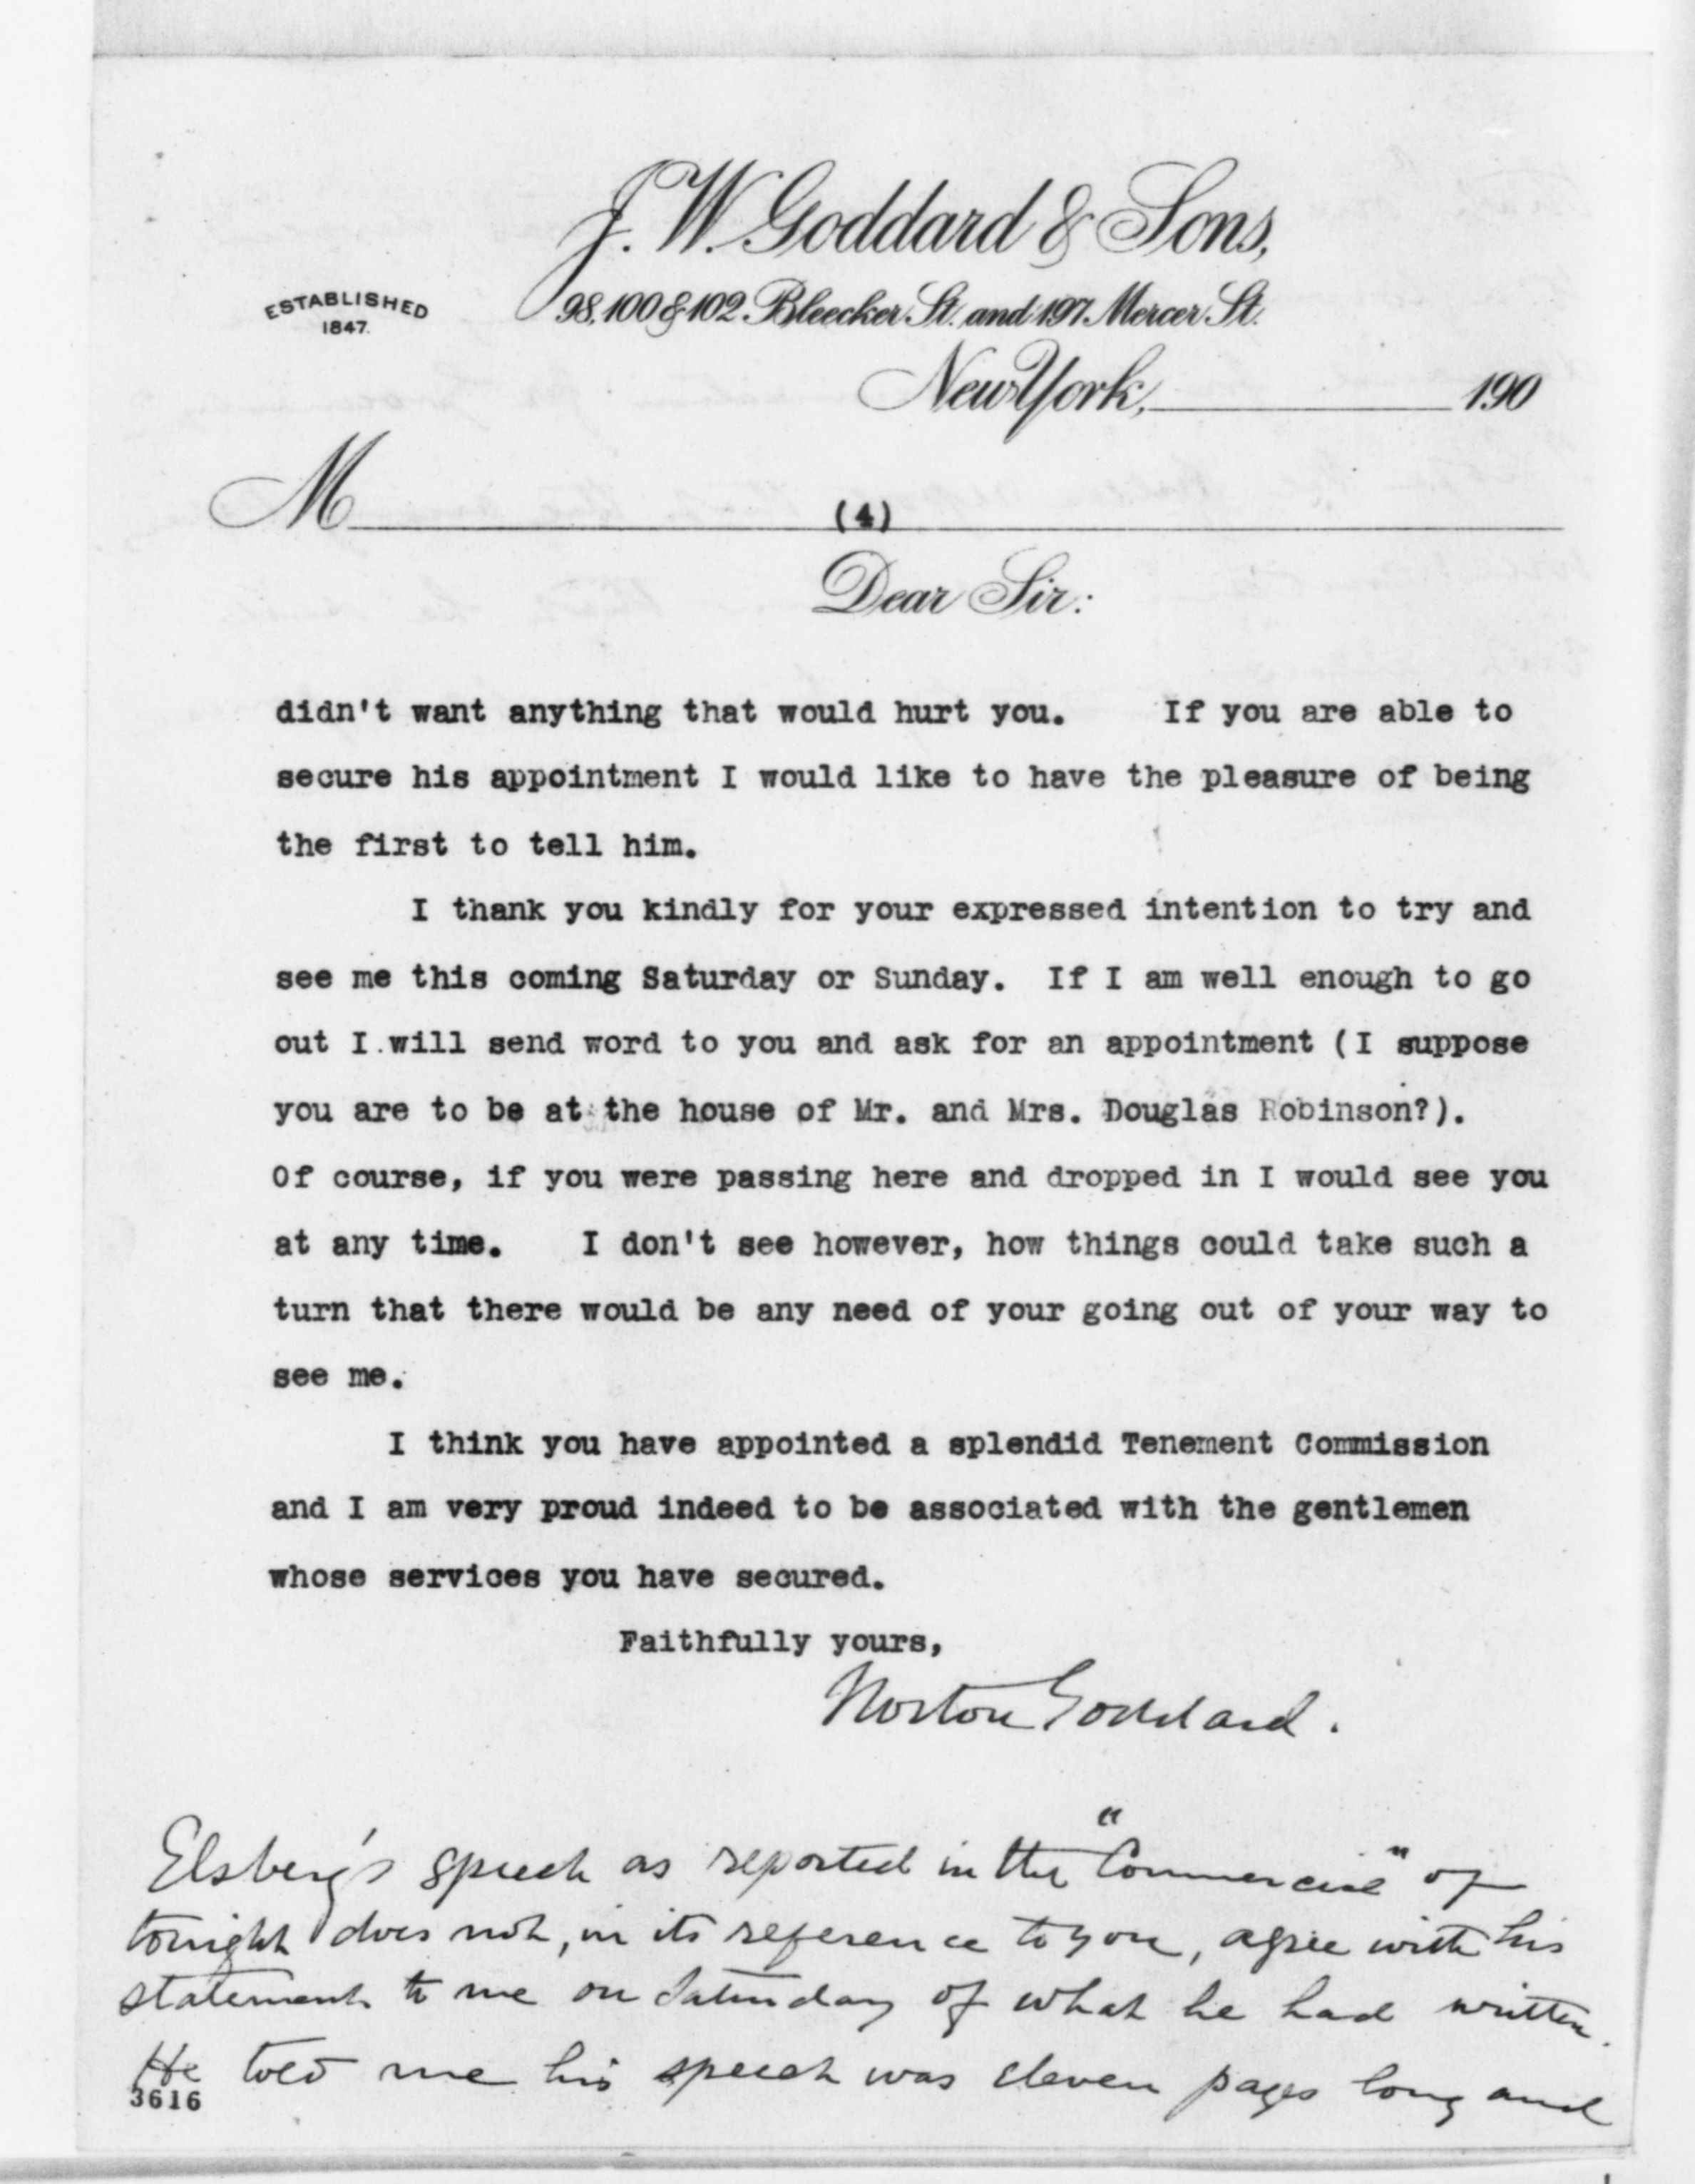 J. W. Goddard & Sons,
ESTABLISHED
1847.
98, 100 & 102 Bleecker St. and 197 Mercer St.
New York, 190
M
(4)
Dear Sir:
didn't want anything that would hurt you. If you are able to
secure his appointment I would like to have the pleasure of being
the first to tell him.
I thank you kindly for your expressed intention to try and
see me this coming Saturday or Sunday. If I am well enough to go
out I will send word to you and ask for an appointment (I suppose
you are to be at the house of Mr. and Mrs. Douglas Robinson?).
Of course, if you were passing here and dropped in I would see you
at any time. I don't see however, how things could take such a
turn that there would be any need of your going out of your way to
see me.
I think you have appointed a splendid Tenement Commission
and I am very proud indeed to be associated with the gentlemen
whose services you have secured.
Faithfully yours,
Norton Goddard.
Elsberg's speech as reported in the "Commercial" of
tonight does not, in its reference to you, agree with his
statement to me on Saturday of what he had written.
He told me his speech was eleven pages long and
3616